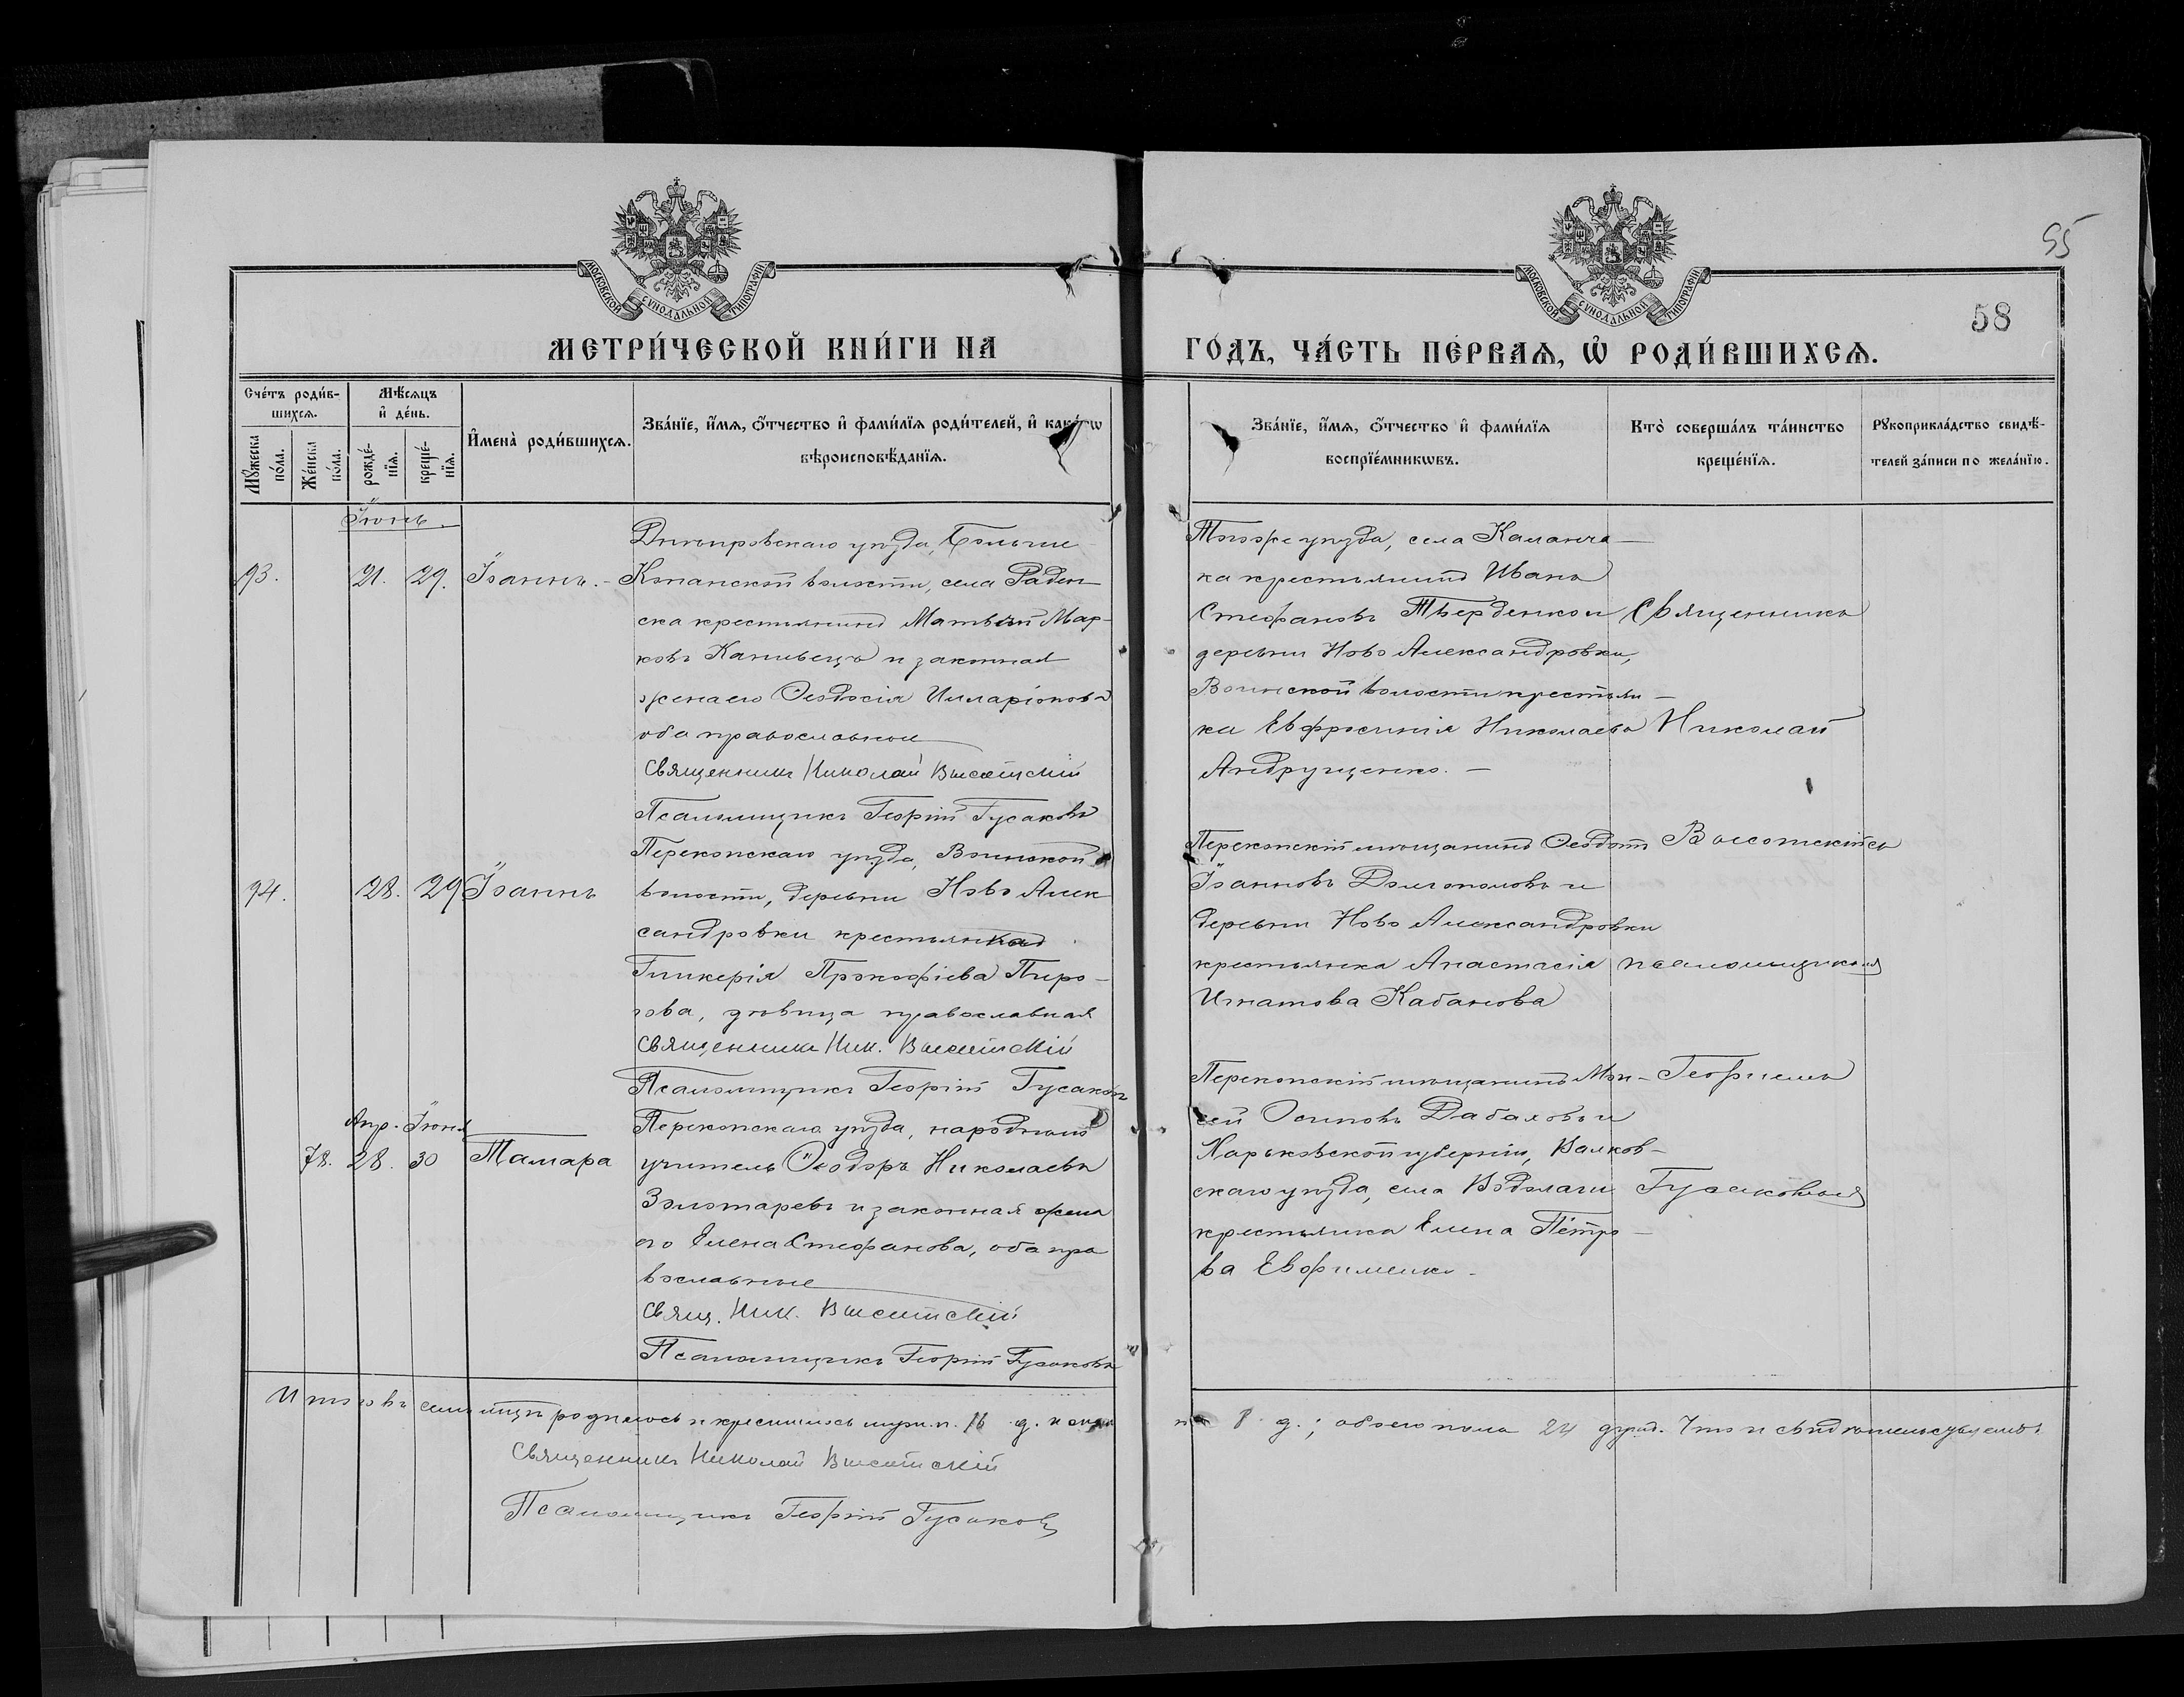 55
58
МОСКОВСКОЙ СѴНОДАЛЬНОЙ ТИПОГРАФІИ
МОСКОВСКОЙ СѴНОДАЛЬНОЙ ТИПОГРАФІИ
МЕТРИ́ЧЕСКОЙ КНИ́ГИ НА
ГО́ДЪ, ЧА́СТЬ ПЕ́РВАѦ, Ѡ҆ РОДИ́ВШИХСѦ.
Сче́тъ роди́в-
шихсѧ.
Мꙋ́жеска по́ла.
Же́нска по́ла.
Мѣ́сѧцъ
и҆ де́нь.
рожде́-
нїѧ.
креще́-
нїѧ.
И҆мена̀ роди́вшихсѧ.
Зва́нїе, и҆́мѧ, ѻ҆́тчество и҆ фами́лїѧ роди́телей, и҆ како́гѡ
вѣроисповѣ́данїѧ.
Зва́нїе, и҆́мѧ, ѻ҆́тчество и҆ фами́лїѧ
воспрїе́мникѡвъ.
Кто̀ соверша́лъ та́инство
креще́нїѧ.
Рꙋкоприкла́дство свидѣ́-
телей за́писи по жела́нїю.
Іюнь.
93.
21. 29. Іоаннъ.
Днѣпровскаго уѣзда, Больше
Копанской волости, села Раден
ска крестьянинъ Матвѣй Мар-
ковъ Каливецъ и законная
жена его Ѳеодосія Илларіонова
оба православные
Священникъ Николай Высотскій
Псаломщикъ Георгій Гусаковъ
Тогоже уѣзда, села Каланча-
ка крестьянинъ Иванъ
Стефановъ Тверденко и
деревни Ново Александровки,
Воинской волости крестьян-
ка Евфросинія Николаева
Андрущенко.
Священникъ
Николай
Высотскій съ
псаломщикомъ
Георгіемъ
Гусаковымъ
94.
28. 29 Іоаннъ
Перекопскаго уѣзда, Воинской
волости, деревни Ново Алек
сандровки крестьянка
Гликерія Прокофіева Пиро-
гова, дѣвица православная
Священникъ Ник. Высотскій
Псаломщикъ Георгій Гусаковъ
Перекопскій мѣщанинъ Ѳеодотъ
Іоанновъ Долгополовъ и
деревни Ново Александровки
крестьянка Анастасія
Игнатова Кабанова
Апр. Іюня
78. 28. 30 Тамара
Перекопскаго уѣзда, народный
учитель Ѳеодоръ Николаевъ
Золотаревъ и законная жена
его Елена Стефанова, оба пра
вославные
Свящ. Ник. Высотскій
Псаломщикъ Георгій Гусаковъ
Перекопскій мѣщанинъ Мои-
сей Осиповъ Дабаховъ и
Харьковской губерніи, Валков-
скаго уѣзда, села Водолаги
крестьянка Елена Петро-
ва Евфименко.
Итого въ семъ мѣсяцѣ родилось и крестилось муж. п. 16 д. и женск
п. 8 д.; обоего пола 24 души. Что и свидѣтельствуемъ.
Священникъ Николай Высотскій
Псаломщикъ Георгій Гусаковъ